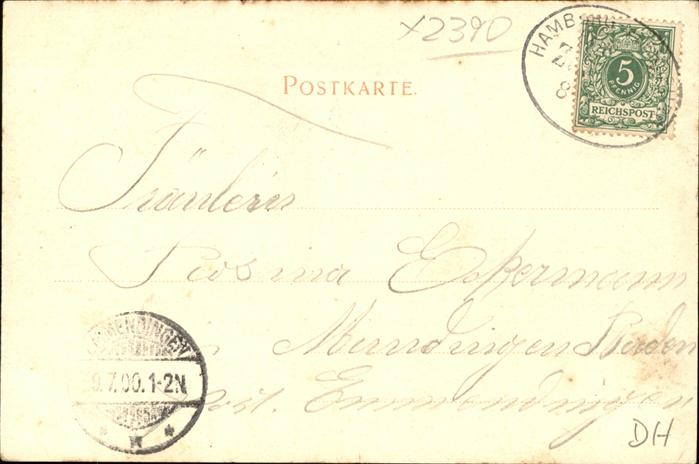 x2390
HAMBURG
5
PFENNIG
REICHSPOST
POSTKARTE.
Fräulein
Rosina Eckermann
in Mundingen Baden
Post. Emmendingen
EMMENDINGEN
9.7.00.1-2N
DH